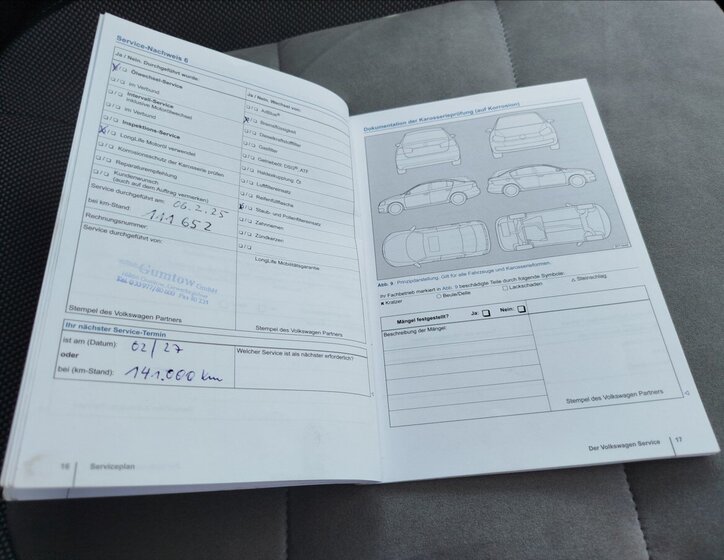 Service-Nachweis 6
Ja / Nein: Durchgeführt wurde:
Ölwechsel-Service
im Verbund
Intervall-Service
inklusive Motorölwechsel
im Verbund
Inspektions-Service
LongLife Motoröl verwendet
Korrosionsschutz der Karosserie prüfen
Reparaturempfehlung
Kundenwunsch
(auch auf dem Auftrag vermerken)
Service durchgeführt am: 06.2.25
bei km-Stand: 111 652
Rechnungsnummer:
Service durchgeführt von:
Gumtow GmbH
Stempel des Volkswagen Partners
Ja / Nein: Wechsel von:
AdBlue®
Bremsflüssigkeit
Dieselkraftstofffilter
Gasfilter
Getriebeöl: DSG®, ATF
Haldexkupplung: Öl
Luftfiltereinsatz
Reifenfüllflasche
Staub- und Pollenfiltereinsatz
Zahnriemen
Zündkerzen
LongLife Mobilitätsgarantie
Stempel des Volkswagen Partners
Ihr nächster Service-Termin
ist am (Datum): 02/27
oder
bei (km-Stand): 141.000 km
Welcher Service ist als nächster erforderlich?
16 Serviceplan
Dokumentation der Karosserieprüfung (auf Korrosion)
Abb. 9 Prinzipdarstellung. Gilt für alle Fahrzeuge und Karosserieformen.
Ihr Fachbetrieb markiert in Abb. 9 beschädigte Teile durch folgende Symbole:
× Kratzer ○ Beule/Delle □ Lackschaden △ Steinschlag
Mängel festgestellt? Ja: Nein:
Beschreibung der Mängel:
Stempel des Volkswagen Partners
Der Volkswagen Service 17